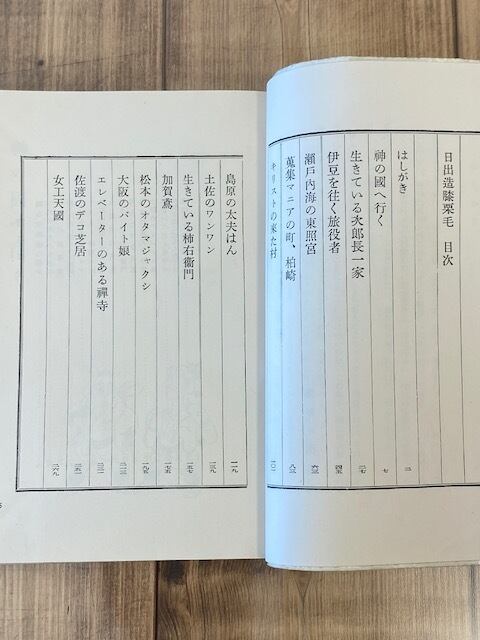 日出造膝栗毛 目次
はしがき 二
神の國へ行く 七
生きている次郎長一家 二七
伊豆を往く旅役者 四五
瀬戸内海の東照宮 六三
蒐集マニアの町、柏崎 八三
キリストの来た村 一〇一
島原の太夫はん 一一九
土佐のワンワン 一三九
生きている柿右衞門 一五七
加賀鳶 一七五
松本のオタマジャクシ 一九五
大阪のバイト娘 二一三
エレベーターのある禪寺 二三一
佐渡のデコ芝居 二五一
女工天國 二六九